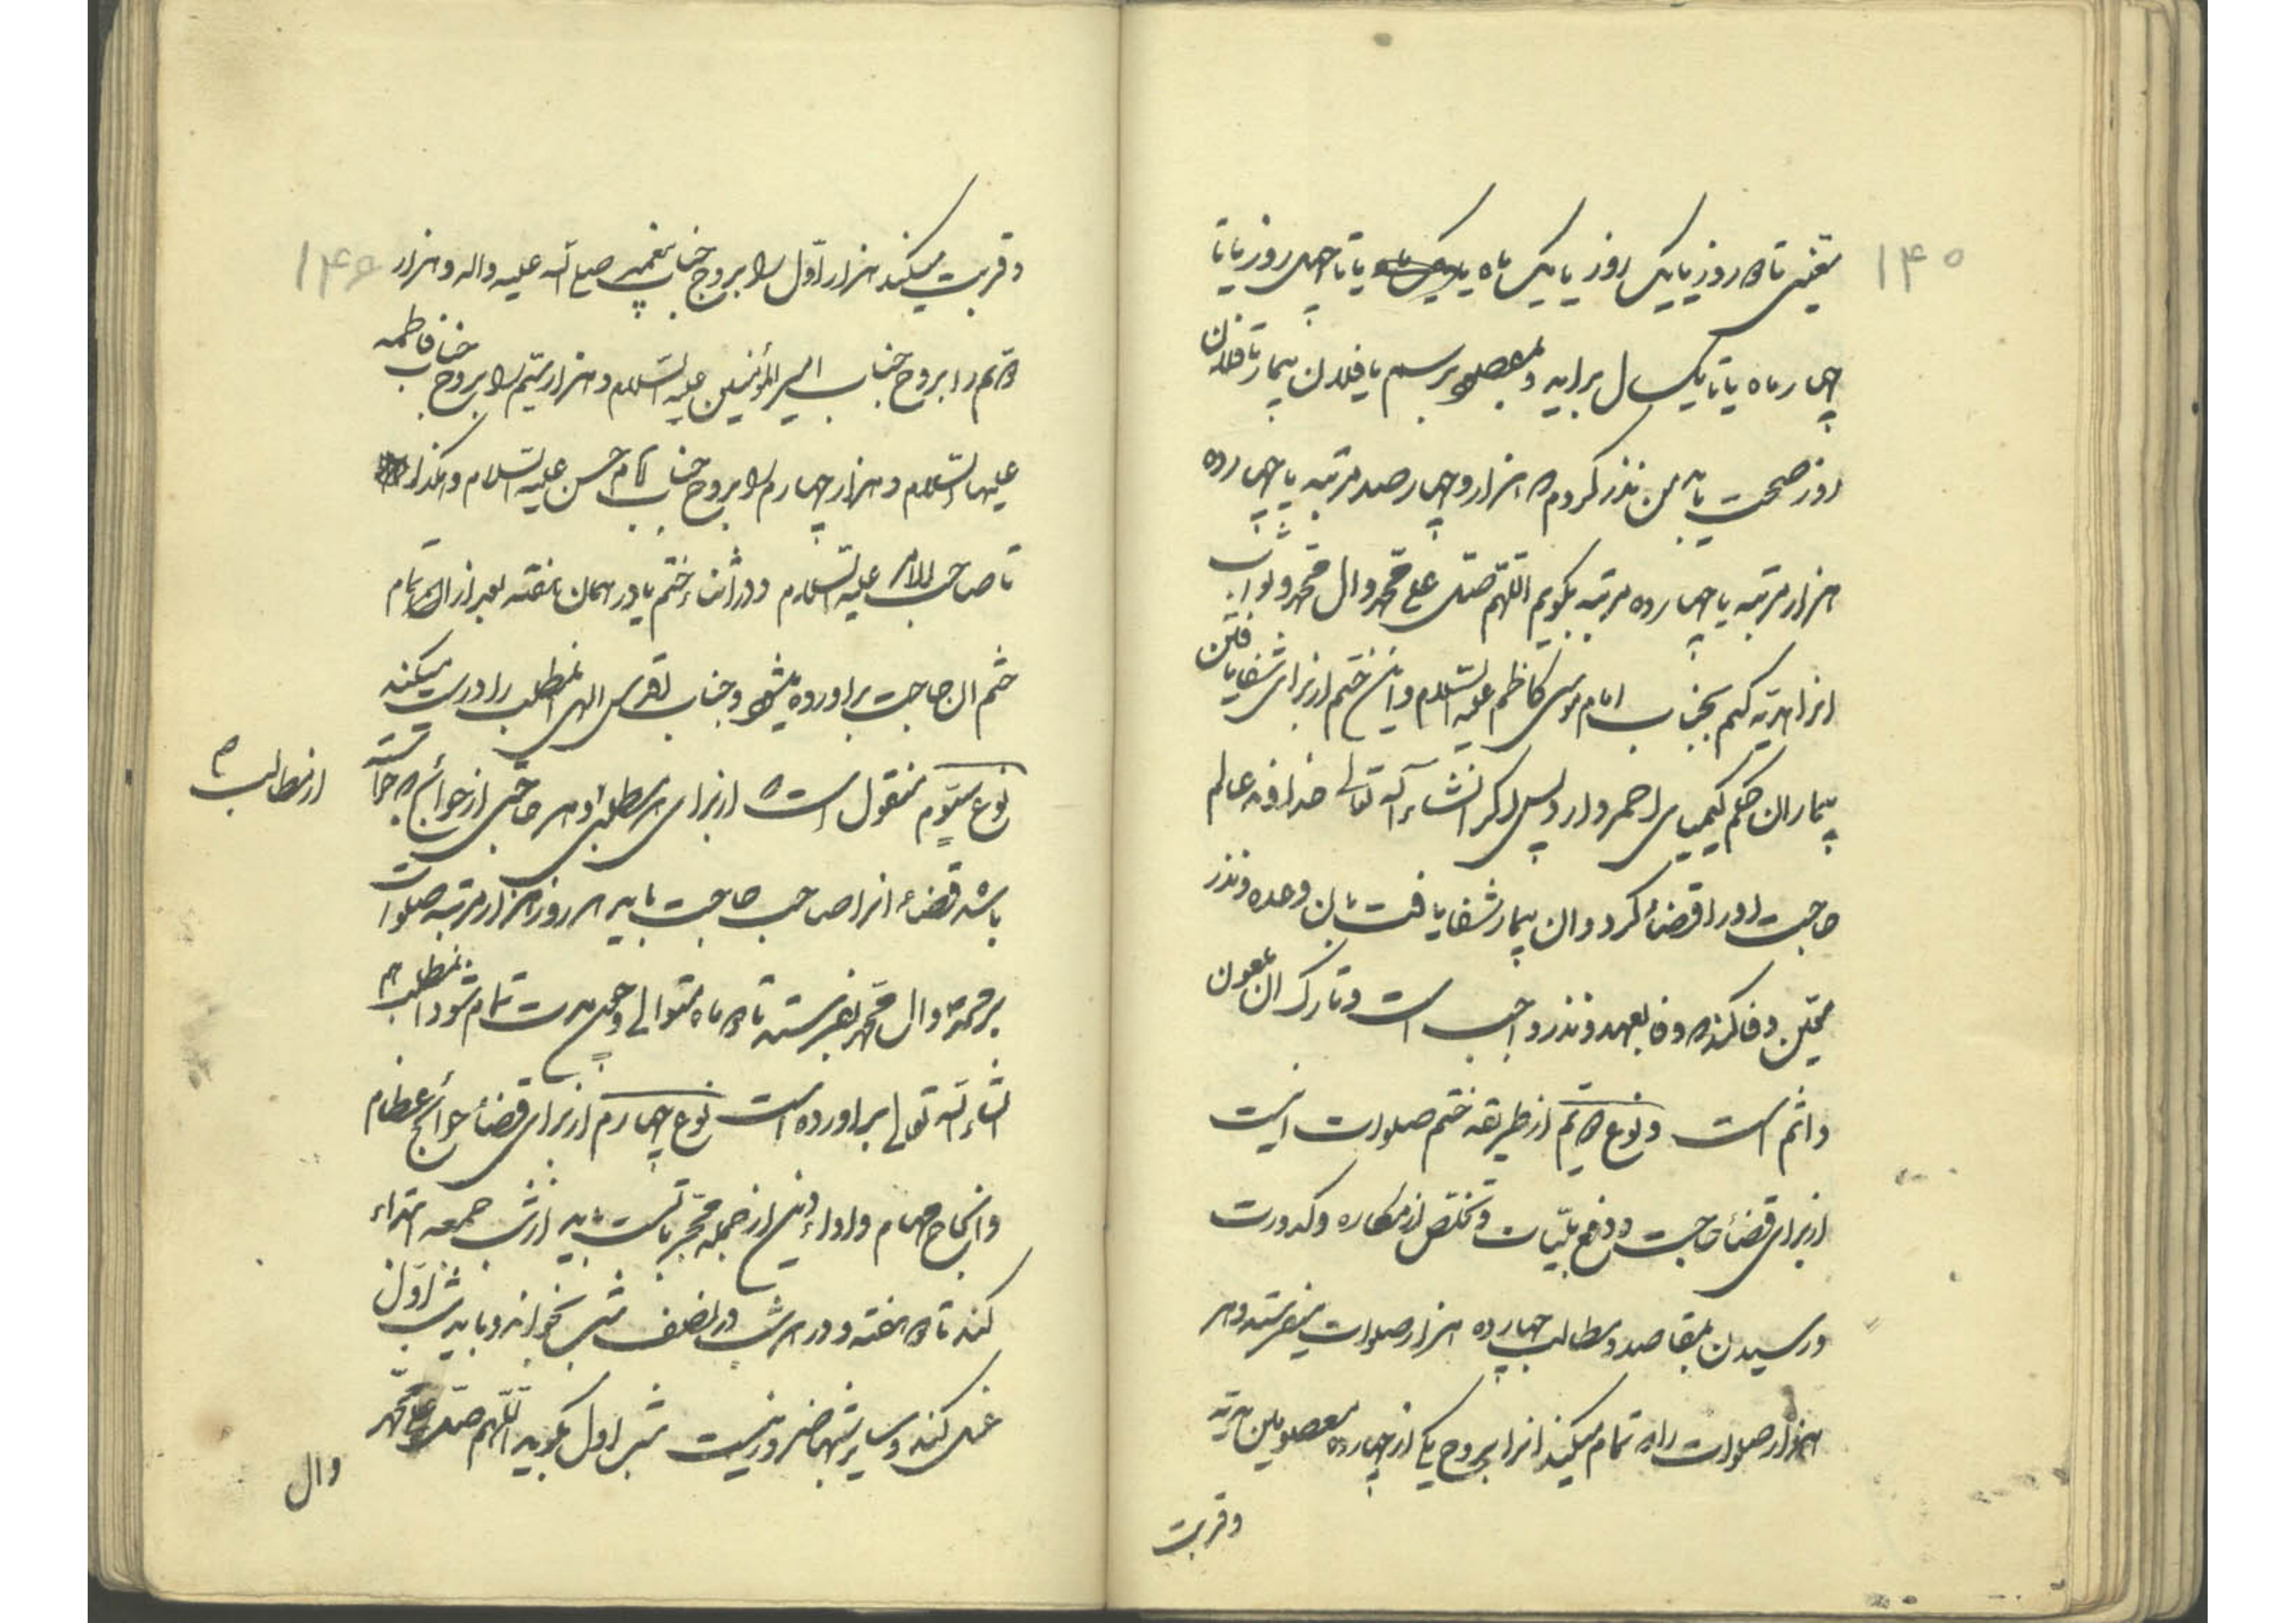 ۱۴۵
یعنی تا ده روز یا یک روز یا یک ماه یا تا چهل روز یا تا
چهار ماه یا تا یکسال براید و بمطلب برسم یا فلان بیمار تا فلان
روز صحت یابد من نذر کردم که هزار و چهارصد مرتبه یا چهارده
هزار مرتبه یا چهارده مرتبه بگویم اللهم صل علی محمد وال محمد و ثواب
انرا هدیه کنم بجناب امام موسی کاظم علیه السلام و این ختم از برای شفا یافتن
بیماران حکم کیمیای احمر دارد پس اگر انشاء الله تعالی خداوند عالم
حاجت او را قضاء کرد و ان بیمار شفا یافت بان وعده و نذر
معین وفا کند که وفا بعهد و نذر واجب است و تارک ان ملعون
و اثم است و نوع دویم از طریقه ختم صلوات اینست
از برای قضاء حاجت و دفع بلیات و تخلص از مکاره و کدورت
و رسیدن بمقاصد و مطالب چهارده هزار صلوات میفرستد و هر
هزار صلوات را که تمام میکند انرا بروح یکی از چهارده معصومین هدیه
و قربت
۱۴۶
و قربت میکند هزار اول را بروح جناب پیغمبر صلی الله علیه واله و هزار
دویم را بروح جناب امیر المؤمنین علیه السلام و هزار سیم را بروح جناب فاطمه
علیها السلام و هزار چهارم را بروح جناب امام حسن علیه السلام و هکذا
تا صاحب الامر علیه السلام و در اثناء ختم یا در همان هفته بعد از اتمام
ختم ان حاجت براورده میشود و جناب اقدس الهی انمطلب را درست میکند
نوع سیوم منقول است که از برای هر مطلبی و هر حاجتی از حوائج که خواسته
از مطالب
باشد قضاء انرا صاحب حاجت باید هر روز هزار مرتبه صلوات
بر محمد وال محمد بفرستد تا ده ماه متوالی و چون مدت تمام شود انمطلب هم
انشاء الله تعالی براورده است نوع چهارم از برای قضاء حوائج عظام
و انجاح مهام و اداء دین از جمله مجربات است باید از شب جمعه ابتداء
کند تا ده هفته و در هر شب در نصف شب بخواند و باید شب اول
غسل کند و سایر شبها ضرور نیست شب اول بگوید اللهم صل علی محمد
وال